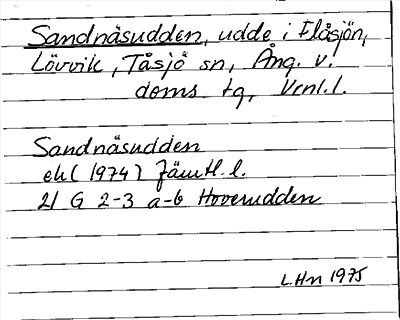 Sandnäsudden, udde i Flåsjön,
Lövvik, Tåsjö sn, Ång. v.
doms. tg, Vrnl.l.
Sandnäsudden
ek (1974) Jämtl. l.
21 G 2-3 a-b Hoverudden
L.Hn 1975